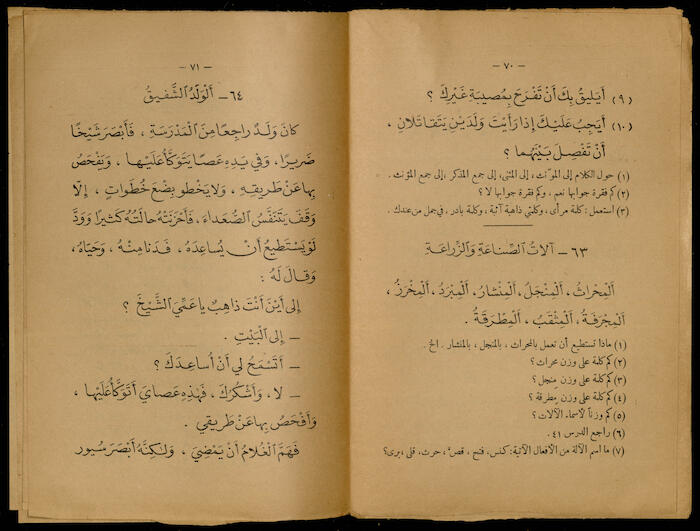 — ٧٠ —
(٩) أَيَلِيقُ بِكَ أَنْ تَفْرَحَ بِمُصِيبَةِ غَيْرِكَ ؟
(١٠) أَيَجِبُ عَلَيْكَ إِذَا رَأَيْتَ وَلَدَيْنِ يَتَقَاتَلَانِ ،
أَنْ تَفْصِلَ بَيْنَهُمَا ؟
(١) حول الكلام إلى المؤنث ، إلى المثنى ، إلى جمع المذكر ، إلى جمع المؤنث .
(٢) كم فقرة جوابها نعم ، وكم فقرة جوابها لا ؟
(٣) استعمل : كلمة مرأى ، وكلمتي ذاهبة آتية ، وكلمة بادر ، في جمل من عندك .
٦٣ — آلَاتُ الصِّنَاعَةِ وَالزِّرَاعَةِ
اَلْمِحْرَاثُ ، اَلْمِنْجَلُ ، اَلْمِنْشَارُ ، اَلْمِبْرَدُ ، اَلْمِخْرَزُ ،
اَلْمِجْرَفَةُ ، اَلْمِثْقَبُ ، اَلْمِطْرَقَةُ .
(١) ماذا تستطيع أن تعمل بالمحراث ، بالمنجل ، بالمنشار . الخ .
(٢) كم كلمة على وزن محراث ؟
(٣) كم كلمة على وزن منجل ؟
(٤) كم كلمة على وزن مطرقة ؟
(٥) كم وزناً لاسماء الآلات ؟
(٦) راجع الدرس ٤١ .
(٧) ما اسم الآلة من الأفعال الآتية : كنس ، فتح ، قص ، حرث ، قلى ، برى ؟
— ٧١ —
٦٤ — اَلْوَلَدُ الشَّفِيقُ
كَانَ وَلَدٌ رَاجِعًا مِنَ الْمَدْرَسَةِ ، فَأَبْصَرَ شَيْخًا
ضَرِيرًا ، وَفِي يَدِهِ عَصًا يَتَوَكَّأُ عَلَيْهَا ، وَيَفْحَصُ
بِهَا عَنْ طَرِيقِهِ ، وَلَا يَخْطُو بِضْعَ خُطُوَاتٍ ، إِلَّا
وَقَفَ يَتَنَفَّسُ الصُّعَدَاءَ ، فَأَحْزَنَتْهُ حَالَتُهُ كَثِيرًا وَوَدَّ
لَوْ يَسْتَطِيعُ أَنْ يُسَاعِدَهُ ، فَدَنَا مِنْهُ ، وَحَيَّاهُ ،
وَقَالَ لَهُ :
إِلَى أَيْنَ أَنْتَ ذَاهِبٌ يَا عَمِّيَ الشَّيْخَ ؟
— إِلَى الْبَيْتِ .
— أَتَسْمَحُ لِي أَنْ أُسَاعِدَكَ ؟
— لَا ، وَأَشْكُرُكَ ، فَهٰذِهِ عَصَايَ أَتَوَكَّأُ عَلَيْهَا ،
وَأَفْحَصُ بِهَا عَنْ طَرِيقِي .
فَهَمَّ الْغُلَامُ أَنْ يَمْضِيَ ، وَلٰكِنَّهُ أَبْصَرَ سُيُورَ